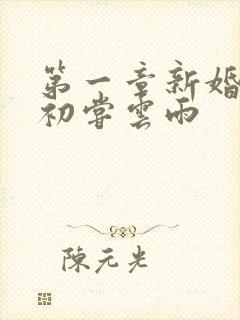 第一章新婚
初嘗雲雨
陳元光